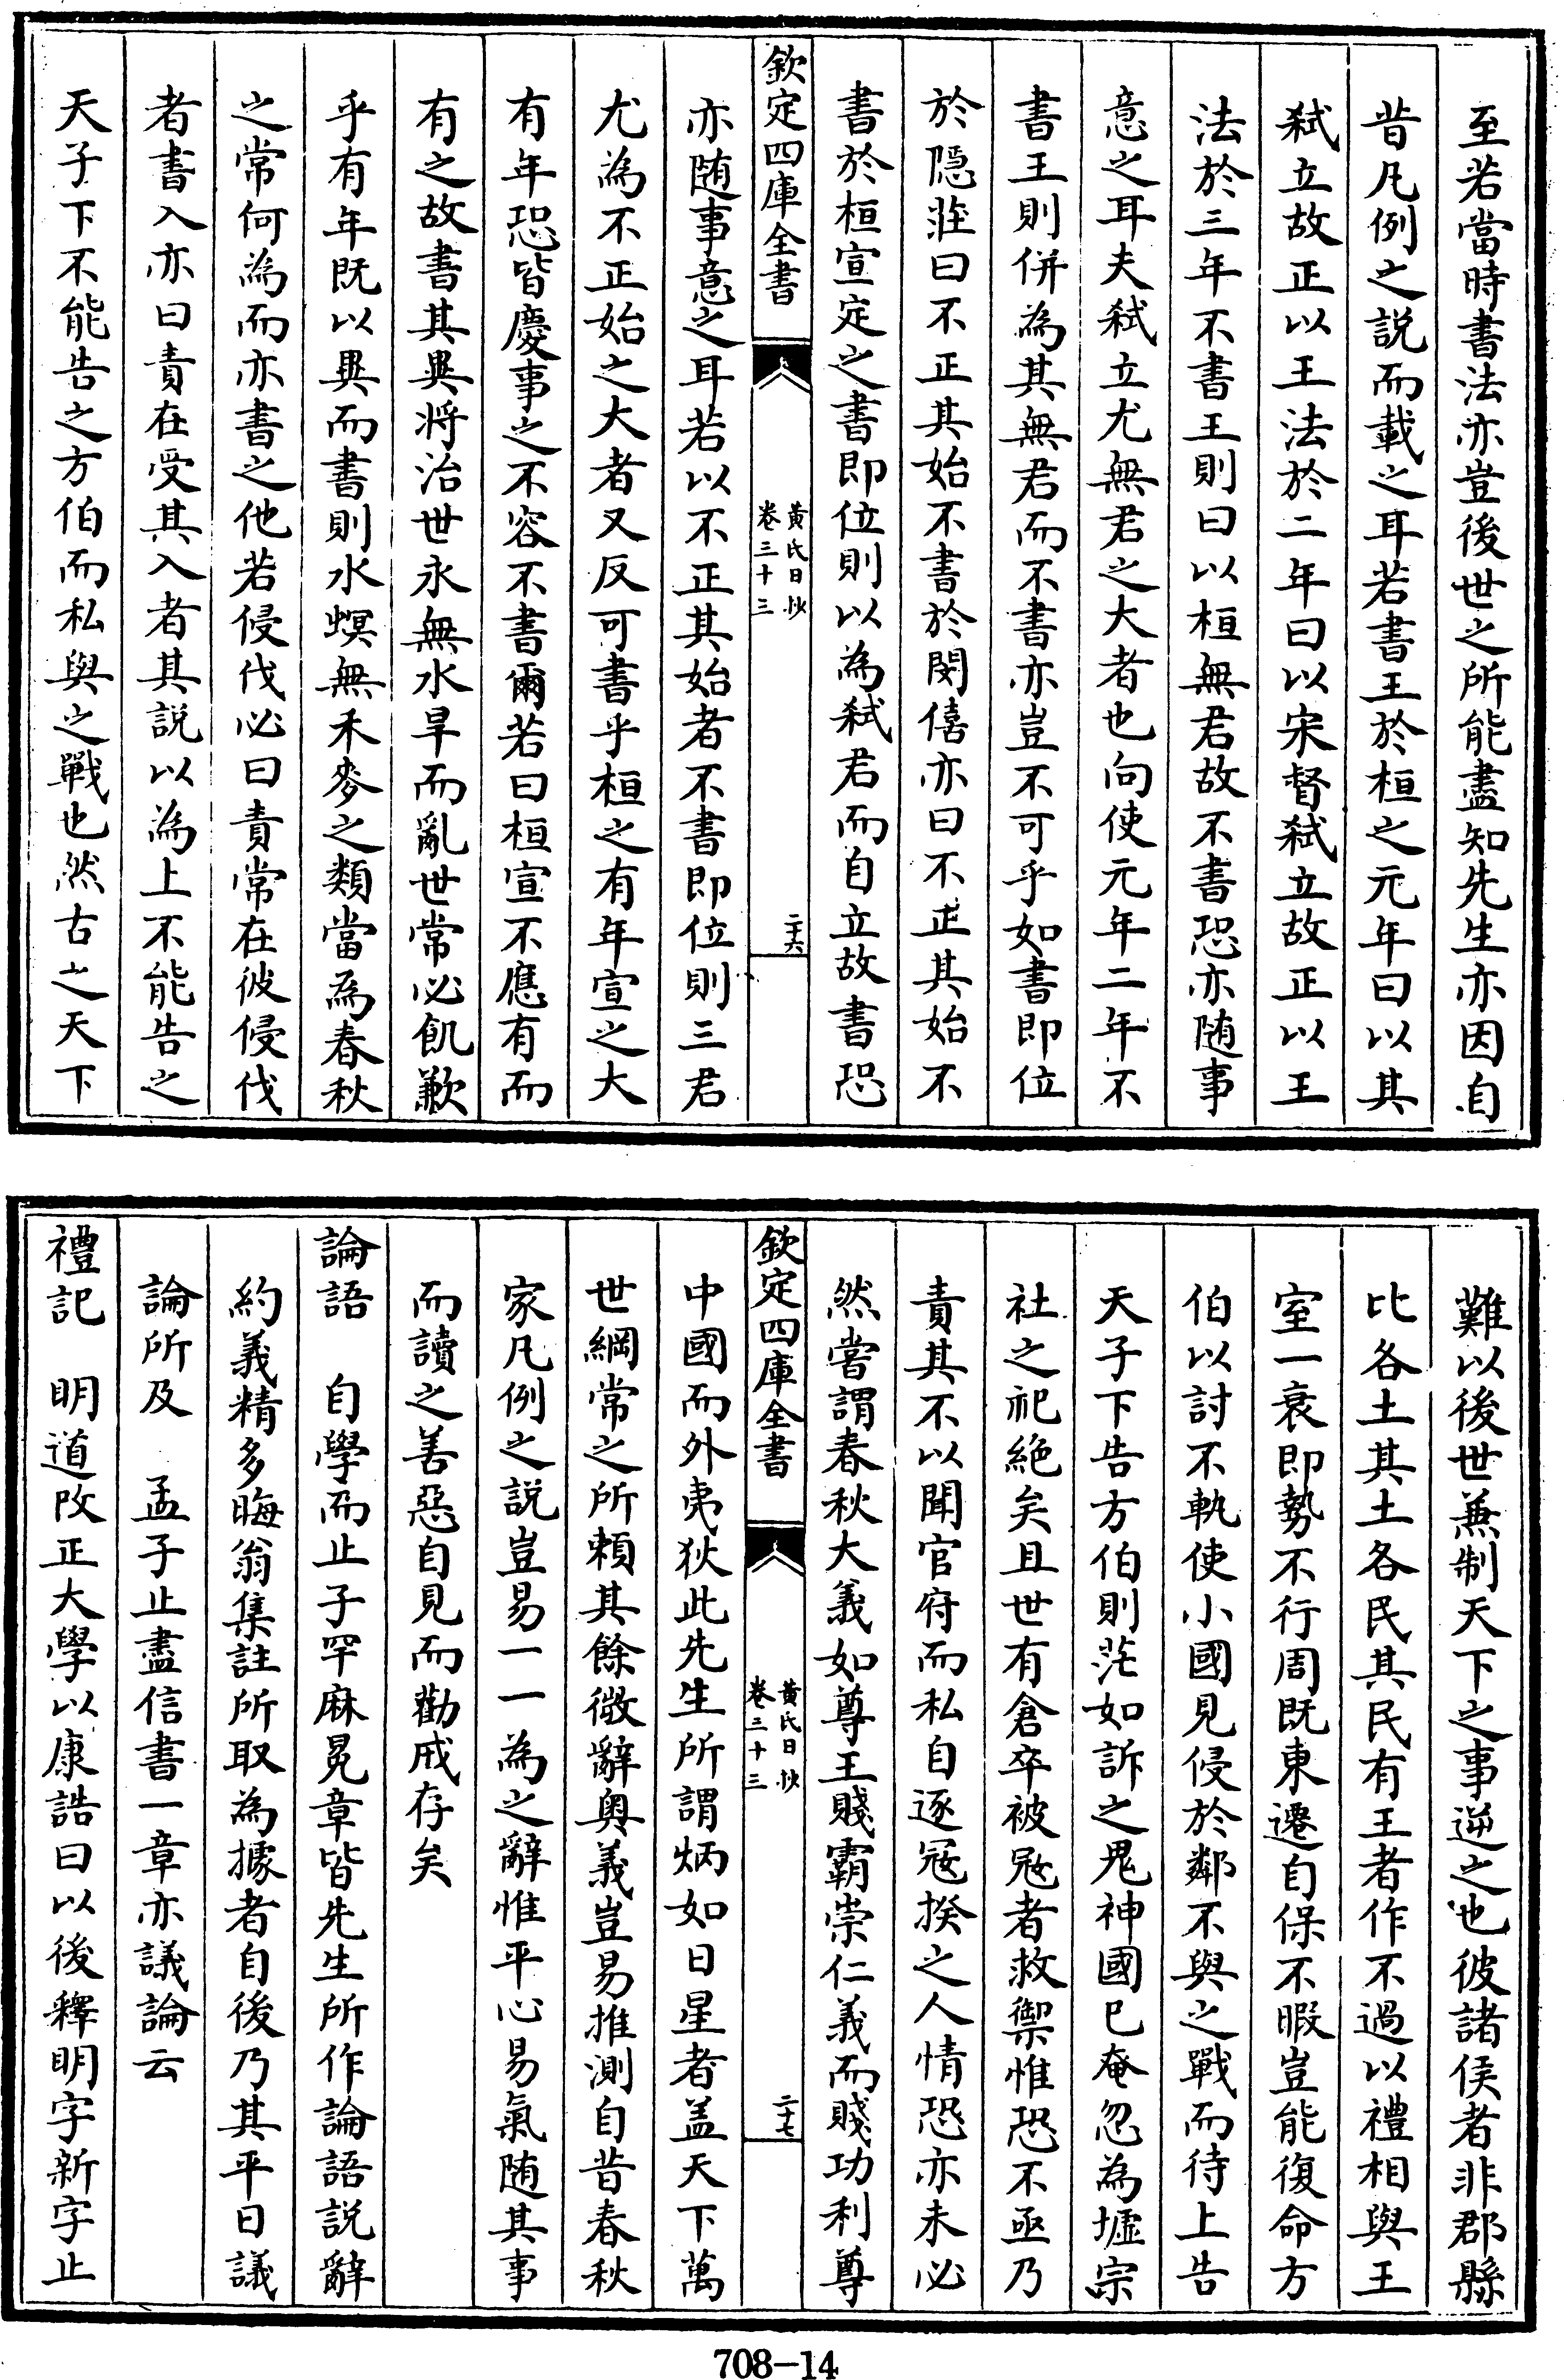 至若當時書法亦豈後世之所能盡知先生亦因自
昔凡例之說而載之耳若書王於桓之元年曰以其
弑立故正以王法於二年曰以宋督弑立故正以王
法於三年不書王則曰以桓無君故不書恐亦随事
意之耳夫弑立尤無君之大者也向使元年二年不
書王則併為其無君而不書亦豈不可乎如書即位
於隱莊曰不正其始不書於閔僖亦曰不正其始不
書於桓宣定之書即位則以為弑君而自立故書恐
欽定四庫全書
黃氏日抄
卷三十三
二十六
亦随事意之耳若以不正其始者不書即位則三君
尤為不正始之大者又反可書乎桓之有年宣之大
有年恐皆慶事之不容不書爾若曰桓宣不應有而
有之故書其異將治世永無水旱而亂世常必飢歉
乎有年既以異而書則水螟無禾麥之類當為春秋
之常何為而亦書之他若侵伐必曰責常在彼侵伐
者書入亦曰責在受其入者其說以為上不能告之
天子下不能告之方伯而私與之戰也然古之天下
難以後世兼制天下之事逆之也彼諸侯者非郡縣
比各土其土各民其民有王者作不過以禮相與王
室一衰即勢不行周既東遷自保不暇豈能復命方
伯以討不軌使小國見侵於鄰不與之戰而待上告
天子下告方伯則茫如訴之鬼神國已奄忽為墟宗
社之祀絕矣且世有倉卒被冦者救禦惟恐不亟乃
責其不以聞官府而私自逐冦揆之人情恐亦未必
然嘗謂春秋大義如尊王賤霸崇仁義而賤功利尊
欽定四庫全書
黃氏日抄
卷三十三
二十七
中國而外夷狄此先生所謂炳如日星者盖天下萬
世綱常之所賴其餘微辭奥義豈易推測自昔春秋
家凡例之說豈易一一為之辭惟平心易氣随其事
而讀之善惡自見而勸戒存矣
論語　自學而止子罕麻冕章皆先生所作論語說辭
約義精多晦翁集註所取為據者自後乃其平日議
論所及　孟子止盡信書一章亦議論云
禮記　明道改正大學以康誥曰以後釋明字新字止
708-14